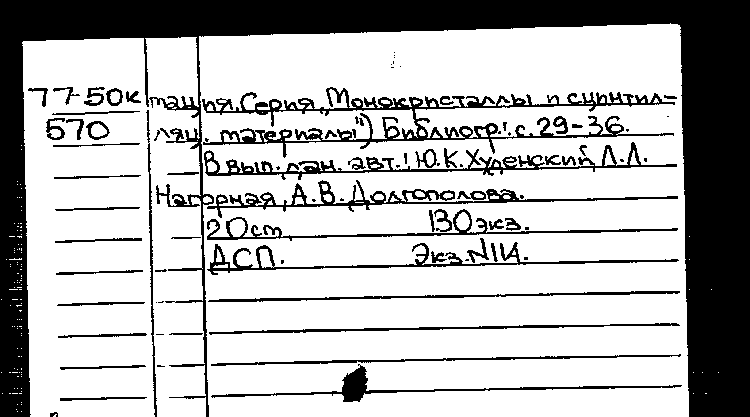 77-50к тация. Серия „Монокристаллы и сцинтил-
570 ляц. материалы") Библиогр.: с. 29-36.
В вып. дан. авт.: Ю.К. Худенский, Л.Л.
Нагорная, А.В. Долгополова.
20 см 130 экз.
ДСП. Экз. №114.